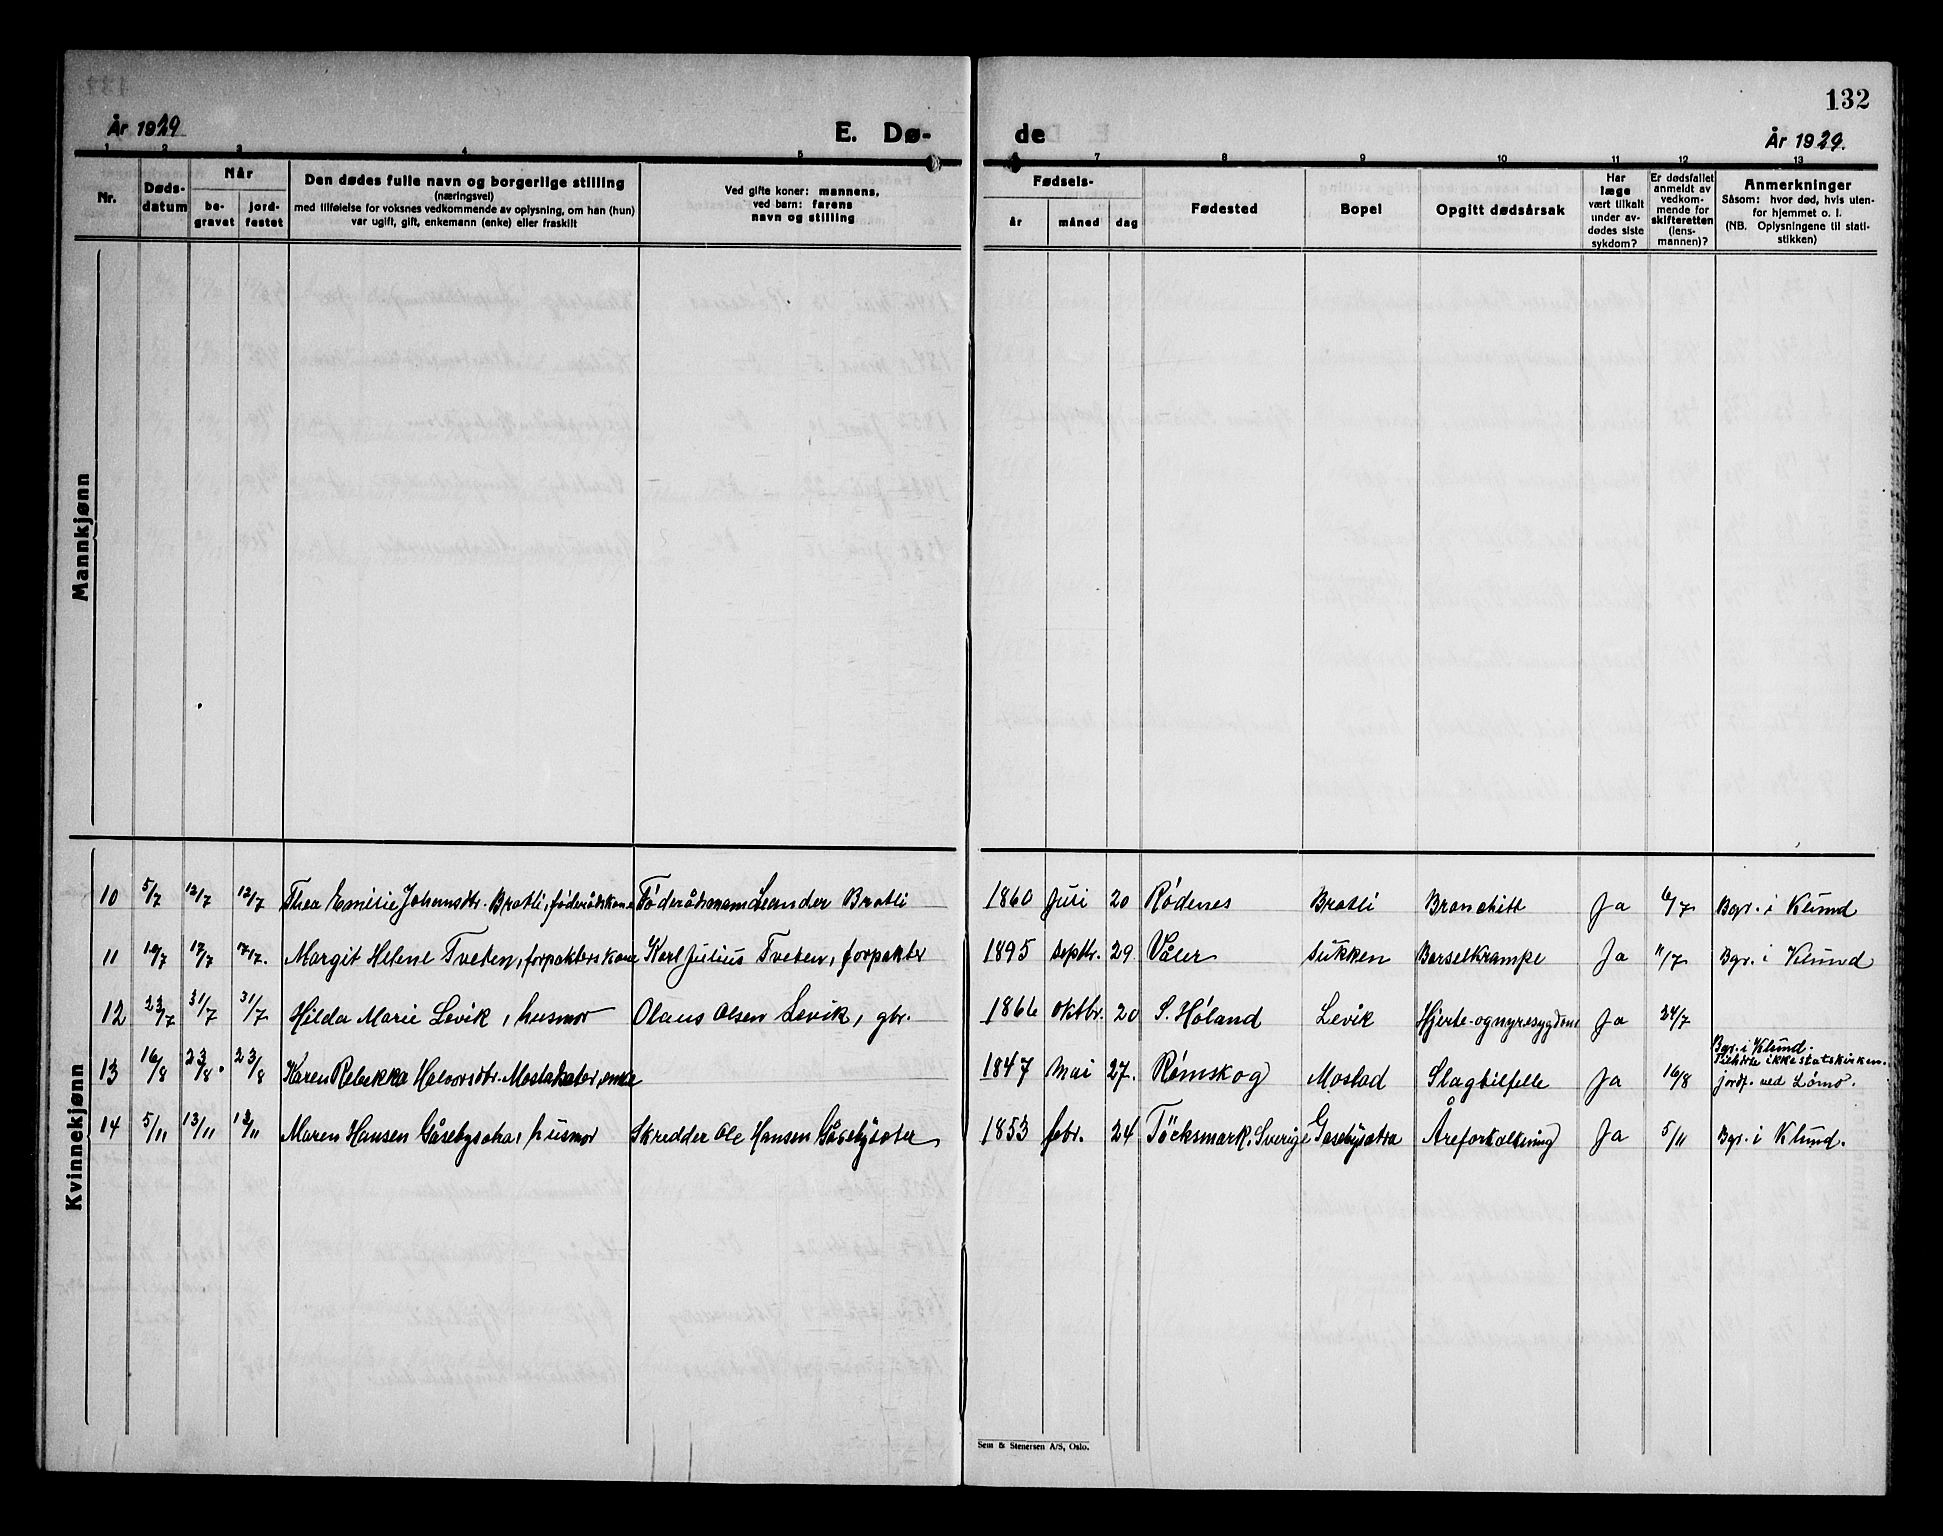 132
År 1929
E. Dø-
de
År 1929.
1 2 3 4 5 6 7 8 9 10 11 12 13
Nr.
Døds-
datum
Når
be-
gravet
jord-
festet
Den dødes fulle navn og borgerlige stilling
(næringsvei)
med tilføielse for voksnes vedkommende av oplysning, om han (hun)
var ugift, gift, enkemann (enke) eller fraskilt
Ved gifte koner: mannens,
ved barn: farens
navn og stilling
Fødsels-
år
måned
dag
Fødested
Bopel
Opgitt dødsårsak
Har
læge
vært tilkalt
under av-
dødes siste
sykdom?
Er dødsfallet
anmeldt av
vedkom-
mende for
skifteretten
(lens-
mannen)?
Anmerkninger
Såsom: hvor død, hvis uten-
for hjemmet o. l.
(NB. Oplysningene til stati-
stikken)
Mannkjønn
Kvinnekjønn
10 5/7 12/7 12/7 Thea Emilie Johannsdtr. Bratli, føderådskone Føderådsmann Leander Bratli 1860 Juli 20 Rødenes Bratli Bronchitt Ja 6/7 Bgr. i Klund
11 10/7 17/7 17/7. Margit Helene Tveten, forpakterskone Karl Julius Tveten, forpakter 1895 septbr. 29 Våler Sukken Barselkrampe Ja 11/7 Bgr. i Klund
12 23/7 31/7 31/7 Hilda Marie Levik, husmor Olaus Olsen Levik, gbr. 1866 oktbr. 20 S. Høland Levik Hjerte- og nyresygdom Ja 24/7
13 16/8 23/8 23/8 Karen Rebekka Halvorsdtr. enke 1847 Mai 27. Rømskog Mostad Slagtilfelle Ja 16/8 Bgr. i Klund.
Tilhørte ikke statskirken.
jordf. ved Lømo.
14 5/11 13/11 13/11 Maren Hansen Gåsebysætra, husmor Skredder Ole Hansen Gåsebysæter 1853 febr. 24 Töcksmark, Sverige Gåsebysætra Åreforkalkning Ja 5/11 Bgr. i Klund.
Sem & Stenersen A/S, Oslo.